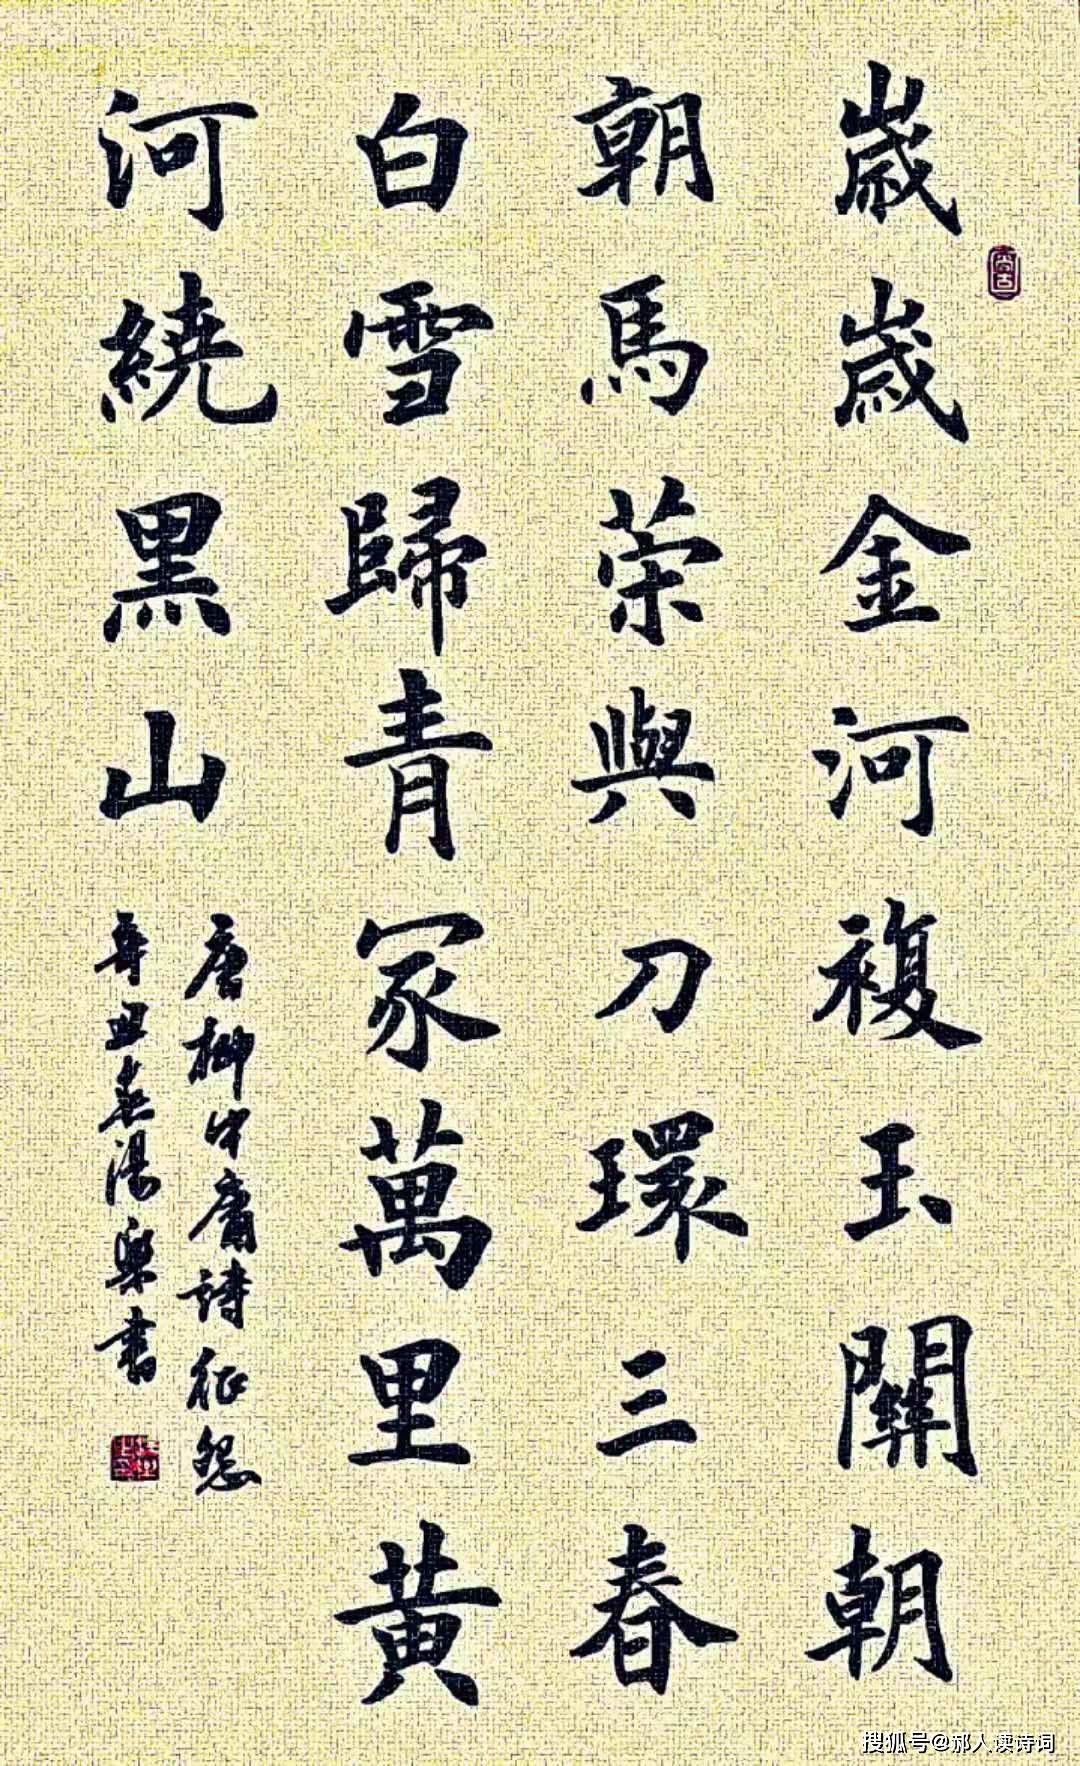 歲歲金河複玉關朝
尚古
朝馬荣與刀環三春
白雪歸青冢萬里黄
河繞黑山
唐柳中庸詩征怨
辛丑樂書
搜狐号@郝人读诗词